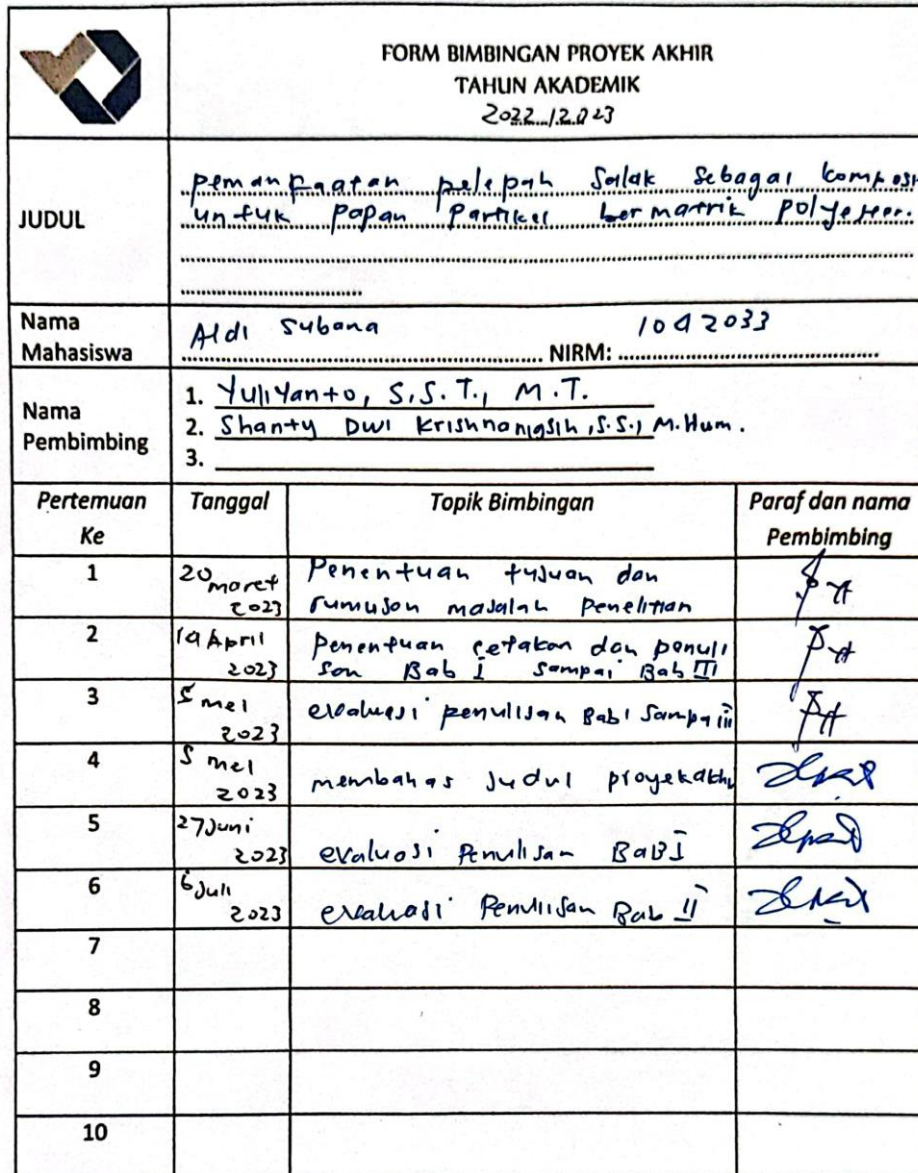 FORM BIMBINGAN PROYEK AKHIR
TAHUN AKADEMIK
2022/2023
JUDUL
pemanfaatan pelepah Salak Sebagai komposi
untuk papan Partikel bermatrik polyester.
Nama Mahasiswa
Aldi Subana NIRM: 1042033
Nama Pembimbing
1. Yuliyanto, S.S.T., M.T.
2. Shanty Dwi Krishnaningsih, S.S., M.Hum.
3.
Pertemuan Ke Tanggal Topik Bimbingan Paraf dan nama Pembimbing
1 20 maret 2023 Penentuan tujuan dan
rumusan masalah Penelitian
2 April 2023 penentuan cetakan dan penuli
san Bab I sampai Bab III
3 5 mei 2023 evaluasi penulisan Bab I Sampai iii
4 5 mei 2023 membahas Judul proyekakhi
5 27 Juni 2023 evaluasi Penulisan BaB I
6 6 Juli 2023 evaluasi Penulisan Bab II
7
8
9
10